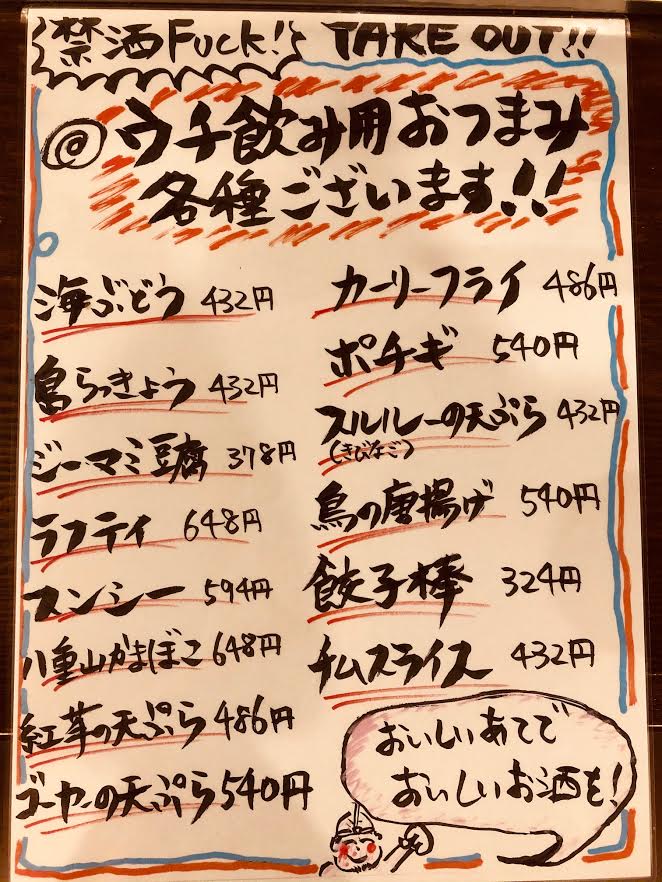 禁酒Fuck! TAKE OUT!!
@ウチ飲み用おつまみ
各種ございます!!
海ぶどう 432円
島らっきょう 432円
ジーマミ豆腐 378円
ラフティ 648円
スンシー 594円
八重山かまぼこ 648円
紅芋の天ぷら 486円
ゴーヤーの天ぷら 540円
カーリーフライ 486円
ポチギ 540円
スルルーの天ぷら 432円
(きびなご)
鳥の唐揚げ 540円
餃子棒 324円
チムスライス 432円
おいしいあてで
おいしいお酒を!